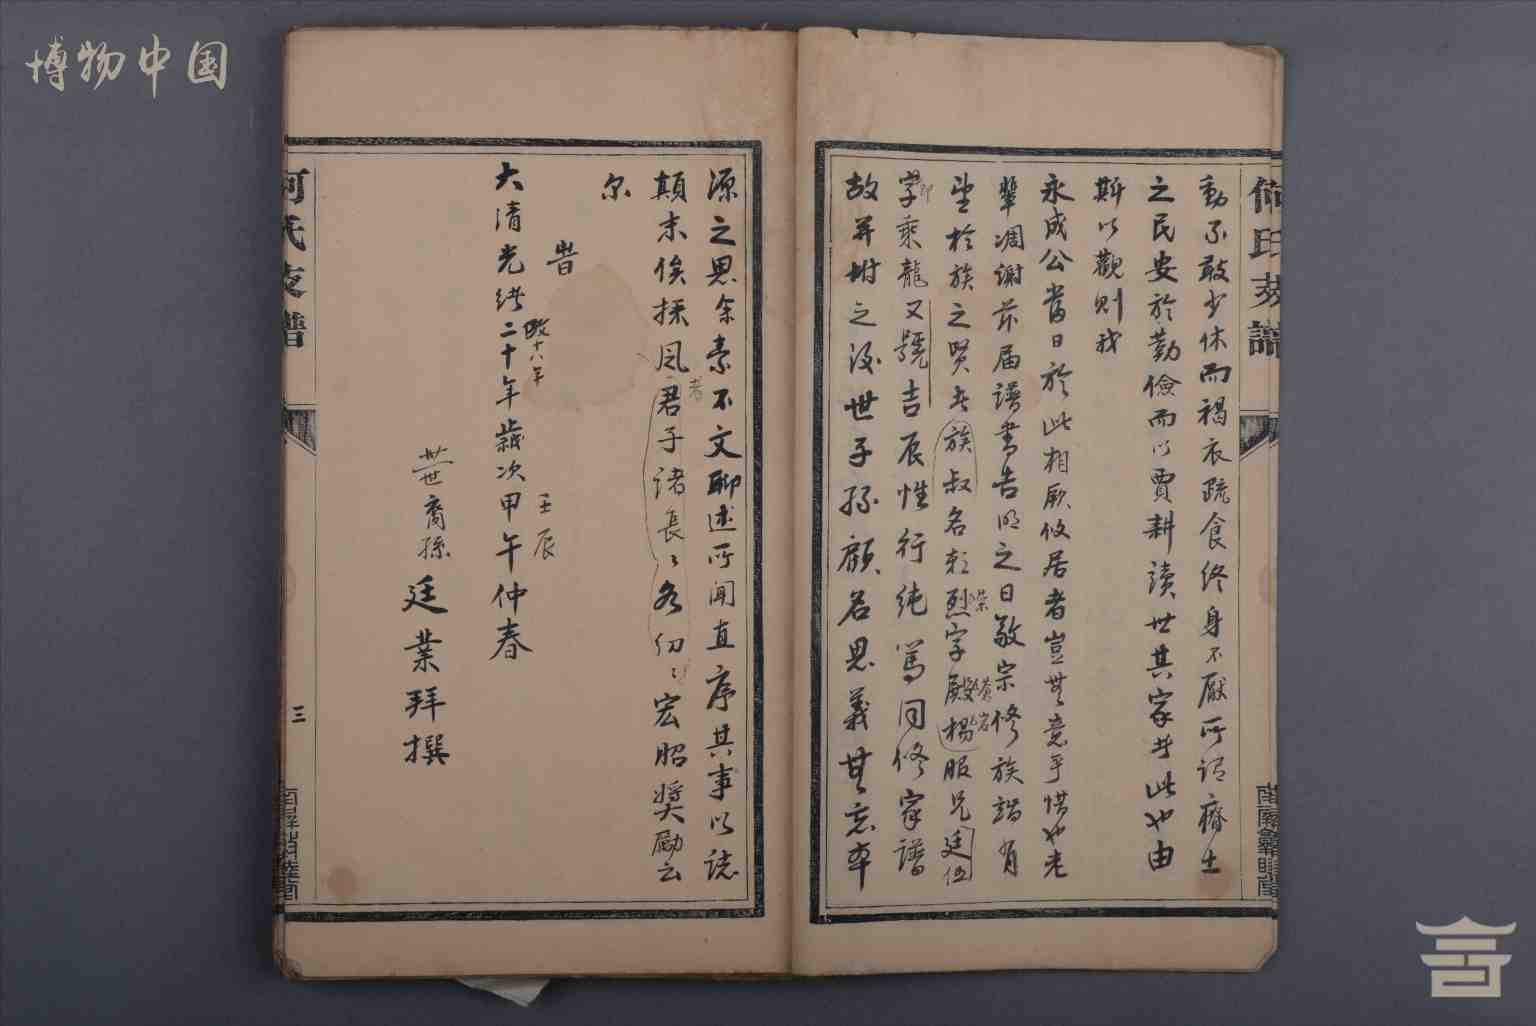 博物中国
何氏支譜
動不敢少休而褐衣疏食终身不厭所谓瘠土
之民安於勤儉而以賈耕讀世其家者此也由
斯以觀則我
永成公當日於此相厥攸居者豈無意乎惜也老
輩凋謝前届譜書告成之日敬宗修族諧有
望於族之賢者族叔名彩烈字殿楊服兄廷伍
榮
蒼岩
字乘龍又號吉辰性行纯篤同修家譜
即
故并坿之後世子孫顧名思義無忘本
源之思余素不文聊述所闻直序其事以誌
顛末俟採風君子諸長各仞宏昭獎勵云
者
尔
昔
大清光绪二十年歲次甲午仲春
改十八年
壬辰
世裔孫廷業拜撰
何氏支譜
三